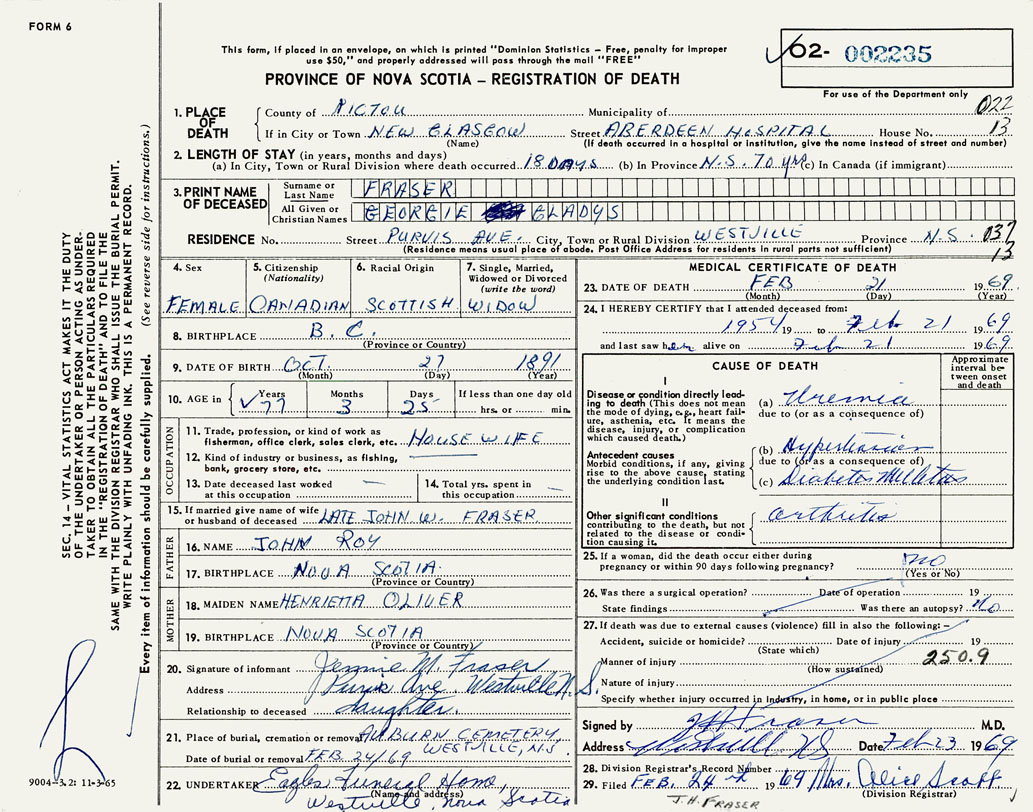 FORM 6
This form, if placed in an envelope, on which is printed "Dominion Statistics – Free, penalty for improper
use $50," and properly addressed will pass through the mail "FREE"
62- 002235
PROVINCE OF NOVA SCOTIA – REGISTRATION OF DEATH
For use of the Department only
022
13
1. PLACE OF DEATH { County of PICTOU Municipality of
If in City or Town NEW GLASGOW Street ABERDEEN HOSPITAL House No.
(Name) (If death occurred in a hospital or institution, give the name instead of street and number)
2. LENGTH OF STAY (in years, months and days)
(a) In City, Town or Rural Division where death occurred 18 DAYS (b) In Province N.S. 70 YRS (c) In Canada (if immigrant)
3. PRINT NAME OF DECEASED
Surname or Last Name FRASER
All Given or Christian Names GEORGIE GLADYS
RESIDENCE No. Street PURVIS AVE. City, Town or Rural Division WESTVILLE Province N.S. 037
(Residence means usual place of abode. Post Office Address for residents in rural parts not sufficient) 13
4. Sex FEMALE
5. Citizenship (Nationality) CANADIAN
6. Racial Origin SCOTTISH
7. Single, Married, Widowed or Divorced (write the word) WIDOW
8. BIRTHPLACE B.C.
(Province or Country)
9. DATE OF BIRTH OCT. 27 1891
(Month) (Day) (Year)
10. AGE in { Years 77 Months 3 Days 25 If less than one day old
hrs. or min.
OCCUPATION
11. Trade, profession or kind of work as
fisherman, office clerk, sales clerk, etc. HOUSE WIFE
12. Kind of industry or business, as fishing,
bank, grocery store, etc.
13. Date deceased last worked
at this occupation —
14. Total yrs. spent in
this occupation —
15. If married give name of wife
or husband of deceased LATE JOHN W. FRASER
FATHER
16. NAME JOHN ROY
17. BIRTHPLACE NOVA SCOTIA
(Province or Country)
MOTHER
18. MAIDEN NAME HENRIETTA OLIVER
19. BIRTHPLACE NOVA SCOTIA
(Province or Country)
20. Signature of informant Jennie M. Fraser
Address Purvis Ave. Westville N.S.
Relationship to deceased daughter.
21. Place of burial, cremation or removal AUBURN CEMETERY,
WESTVILLE, N.S
Date of burial or removal FEB. 24/69
22. UNDERTAKER Eagles Funeral Home
(Name and address)
Westville, Nova Scotia
MEDICAL CERTIFICATE OF DEATH
23. DATE OF DEATH FEB 21 1969.
(Month) (Day) (Year)
24. I HEREBY CERTIFY that I attended deceased from:
1954 19 to Feb 21 1969
and last saw her alive on Feb 21 1969.
CAUSE OF DEATH
Approximate interval between onset and death
I
Disease or condition directly leading to death (This does not mean
the mode of dying, e.g., heart failure, asthenia, etc. It means the
disease, injury, or complication
which caused death.)
(a) Uremia
due to (or as a consequence of)
Antecedent causes
Morbid conditions, if any, giving
rise to the above cause, stating
the underlying condition last.
(b) Hypertension
due to (or as a consequence of)
(c) Diabetes Mellitus
II
Other significant conditions
contributing to the death, but not
related to the disease or condition causing it.
arthritis
25. If a woman, did the death occur either during
pregnancy or within 90 days following pregnancy? no
(Yes or No)
26. Was there a surgical operation? Date of operation 19
State findings Was there an autopsy? No
27. If death was due to external causes (violence) fill in also the following: –
Accident, suicide or homicide? Date of injury 19
(State which)
Manner of injury 250.9
(How sustained)
Nature of injury
Specify whether injury occurred in industry, in home, or in public place
Signed by J H Fraser M.D.
Address Westville NS Date Feb 23 1969
28. Division Registrar's Record Number
29. Filed FEB. 24th 1969 Mrs. Alice Scott
(Division Registrar)
J.H. FRASER
SEC. 14 – VITAL STATISTICS ACT MAKES IT THE DUTY
OF THE UNDERTAKER OR PERSON ACTING AS UNDER-
TAKER TO OBTAIN ALL THE PARTICULARS REQUIRED
IN THE "REGISTRATION OF DEATH" AND TO FILE THE
SAME WITH THE DIVISION REGISTRAR WHO SHALL ISSUE THE BURIAL PERMIT.
WRITE PLAINLY WITH UNFADING INK. THIS IS A PERMANENT RECORD.
Every item of information should be carefully supplied. (See reverse side for instructions.)
9004-3.2: 11-3-65